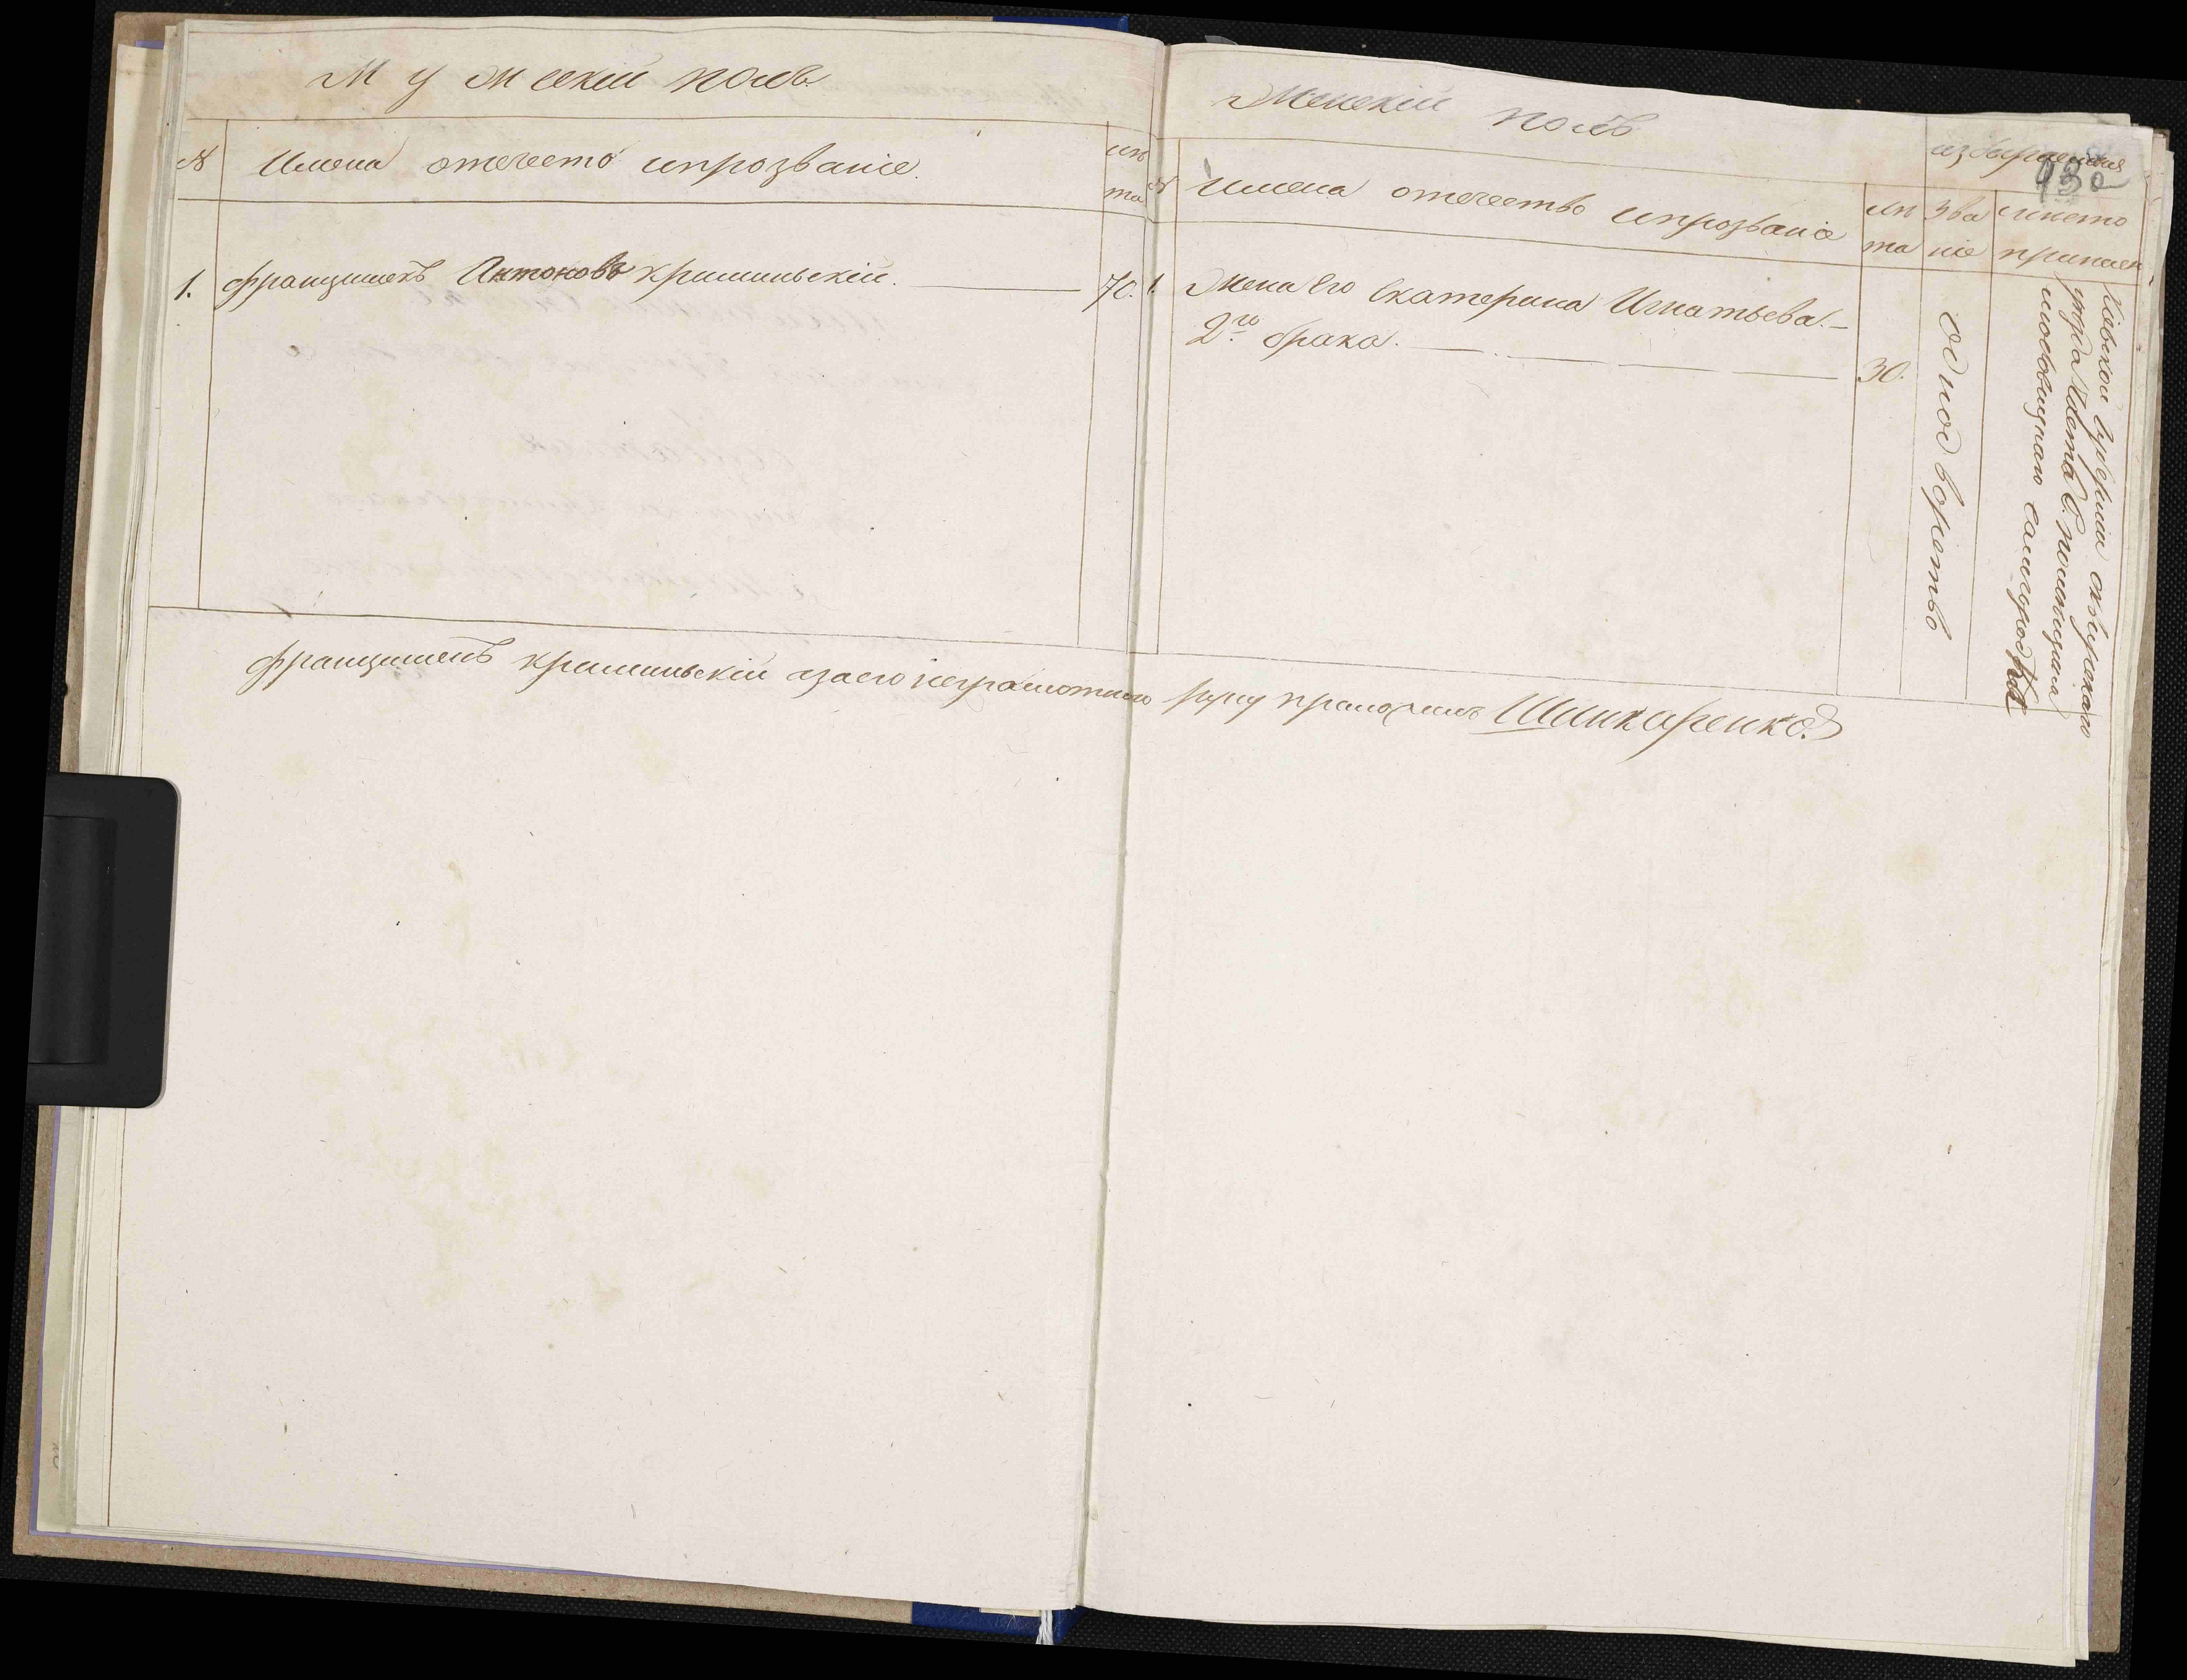 Мужескій полъ
№
Имена отечество ипрозваніе.
лѣ
та
1.
францишекъ Антоновъ кришинскій.
70.
Женскій полъ
№
Имена отечество ипрозваніе
лѣ
та
Зва
ніе
мѣсто
1.
Жена Его Екатерина Игнатьева.
2го брака.
30.
однодворство
Кіевской Губерніи сквирскаго
уѣзда
францишекъ кришинскій азаего неграмотнаго руку приложилъ Шинкаренко